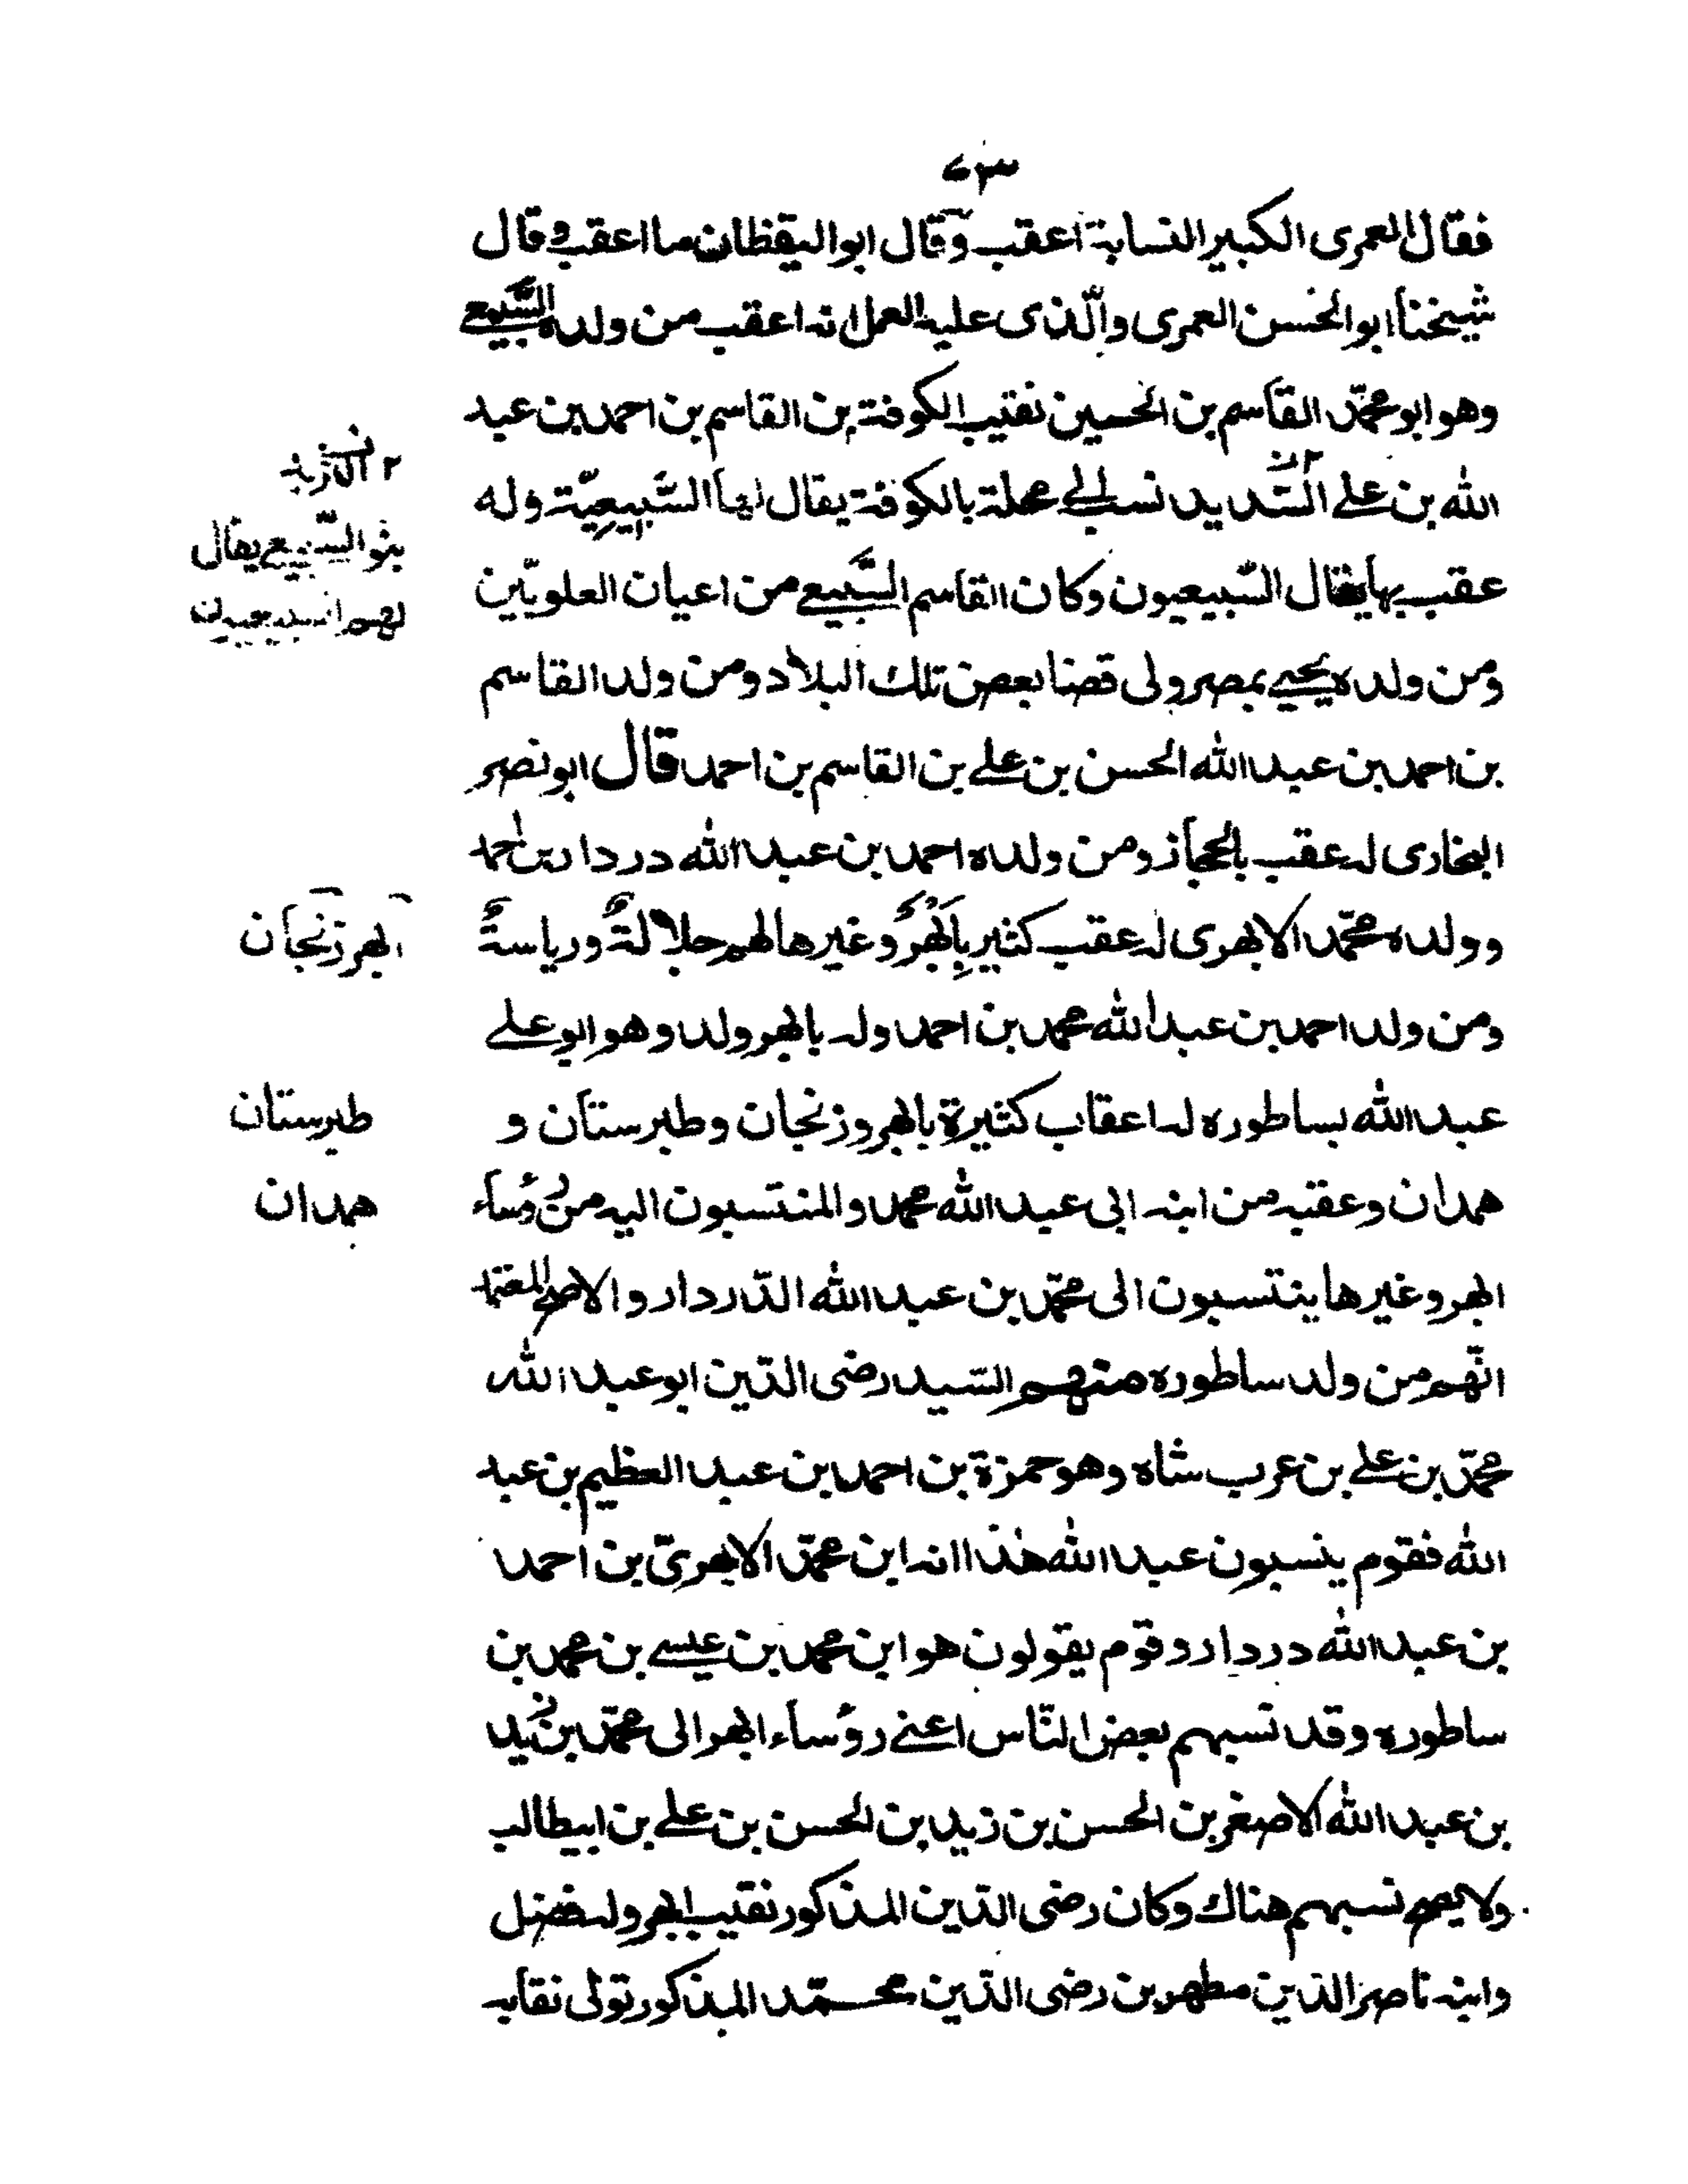 فقال العمرى الكبير النسابة اعقب وقال ابو اليقظان ما اعقب وقال
شيخنا ابو الحسن العمرى والّذى عليه العمل انه اعقب من ولده السَّبيعى
وهو ابو محمّد القاسم بن الحسين نقيب الكوفة بن القاسم بن احمد بن عبد
الله بن على السّديد نسب الى محلة بالكوفة يقال لها السَّبيعيّة وله
عقب بها يقال السّبيعيون وكان القاسم السَّبيعى من اعيان العلويّين
ومن ولده يحيى بمصر ولى قضا بعض تلك البلاد ومن ولد القاسم
بن احمد بن عبد الله الحسن بن على بن القاسم بن احمد قال ابو نصر
البخارى له عقب بالحجاز ومن ولده احمد بن عبد الله دردار بن احمد
وولده محمّد الابهرى له عقب كثير بِاَبْهَرُ وغيرها لهم جلالةٌ ورياسةٌ
ومن ولد احمد بن عبد الله محمد بن احمد وله بابهر ولد وهو ابو على
عبد الله بساطوره له اعقاب كثيرة بابهر وزنجان وطبرستان و
همدان وعقبه من ابنه ابى عبد الله محمد والمنتسبون اليه من رؤساء
ابهر وغيرها ينتسبون الى محمّد بن عبد الله الدّردار والاصح المعتمد
انّهم من ولد ساطوره منهم السّيد رضى الدّين ابو عبد الله
محمّد بن على بن عرب شاه وهو حمزة بن احمد بن عبد العظيم بن عبد
الله فقوم ينسبون عبد الله هذا انه ابن محمّد الابهرىّ بن احمد
بن عبد الله دردار وقوم يقولون هو ابن محمد بن عيسى بن محمد بن
ساطوره وقد نسبهم بعض النّاس اعنى رؤساء ابهر الى محمّد بن زيد
بن عبد الله الاصغر بن الحسن بن زيد بن الحسن بن على بن ابيطالب
ولا يصح نسبهم هناك وكان رضى الدّين المذكور نقيب ابهر وله فضل
وابنه ناصر الدّين مطهر بن رضى الدّين محمّد المذكور تولى نقابه
بنو السّبيع يقال
لهم السبيعيون
ابهر زنجان
طبرستان
همدان